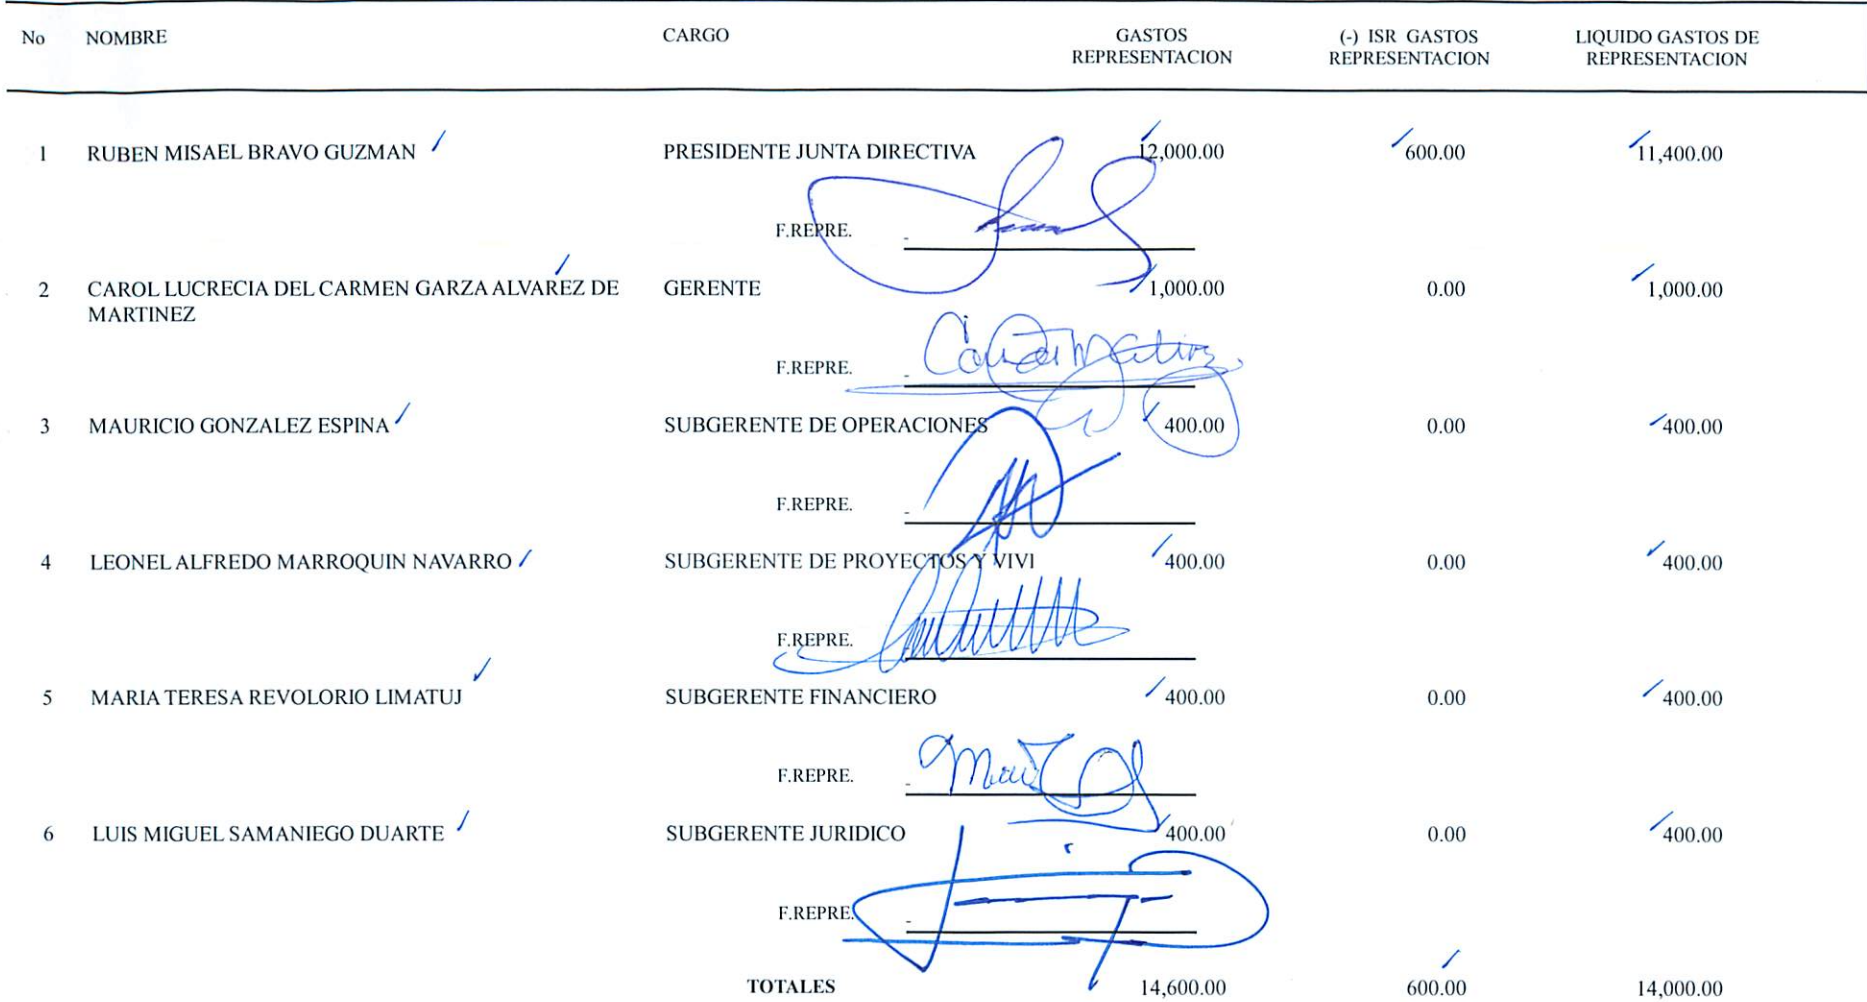 No NOMBRE CARGO GASTOS (-) ISR GASTOS LIQUIDO GASTOS DE
REPRESENTACION REPRESENTACION REPRESENTACION
1 RUBEN MISAEL BRAVO GUZMAN PRESIDENTE JUNTA DIRECTIVA 12,000.00 600.00 11,400.00
F.REPRE.
2 CAROL LUCRECIA DEL CARMEN GARZA ALVAREZ DE GERENTE 1,000.00 0.00 1,000.00
MARTINEZ
F.REPRE.
3 MAURICIO GONZALEZ ESPINA SUBGERENTE DE OPERACIONES 400.00 0.00 400.00
F.REPRE.
4 LEONEL ALFREDO MARROQUIN NAVARRO SUBGERENTE DE PROYECTOS Y VIVI 400.00 0.00 400.00
F.REPRE.
5 MARIA TERESA REVOLORIO LIMATUJ SUBGERENTE FINANCIERO 400.00 0.00 400.00
F.REPRE.
6 LUIS MIGUEL SAMANIEGO DUARTE SUBGERENTE JURIDICO 400.00 0.00 400.00
F.REPRE.
TOTALES 14,600.00 600.00 14,000.00